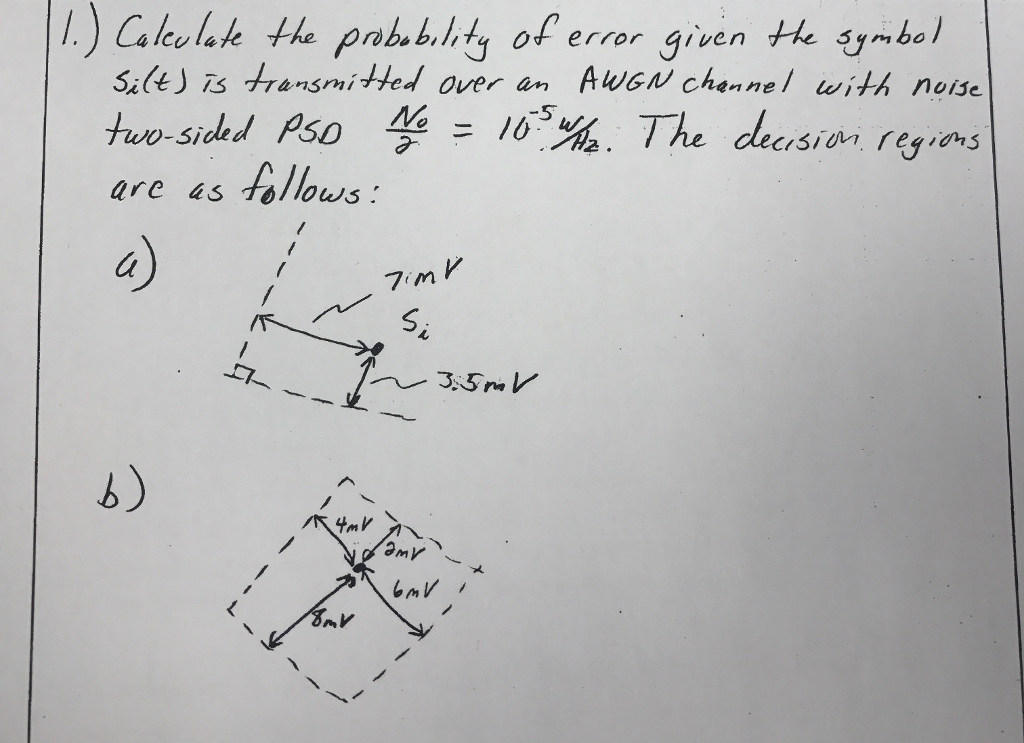 1.) Calculate the probability of error given the symbol
Si(t) is transmitted over an AWGN channel with noise
two-sided PSD No/2 = 10^-5 W/Hz. The decision regions
are as follows:
a)
7mV
Si
3.5mV
b)
4mV
2mV
6mV
8mV